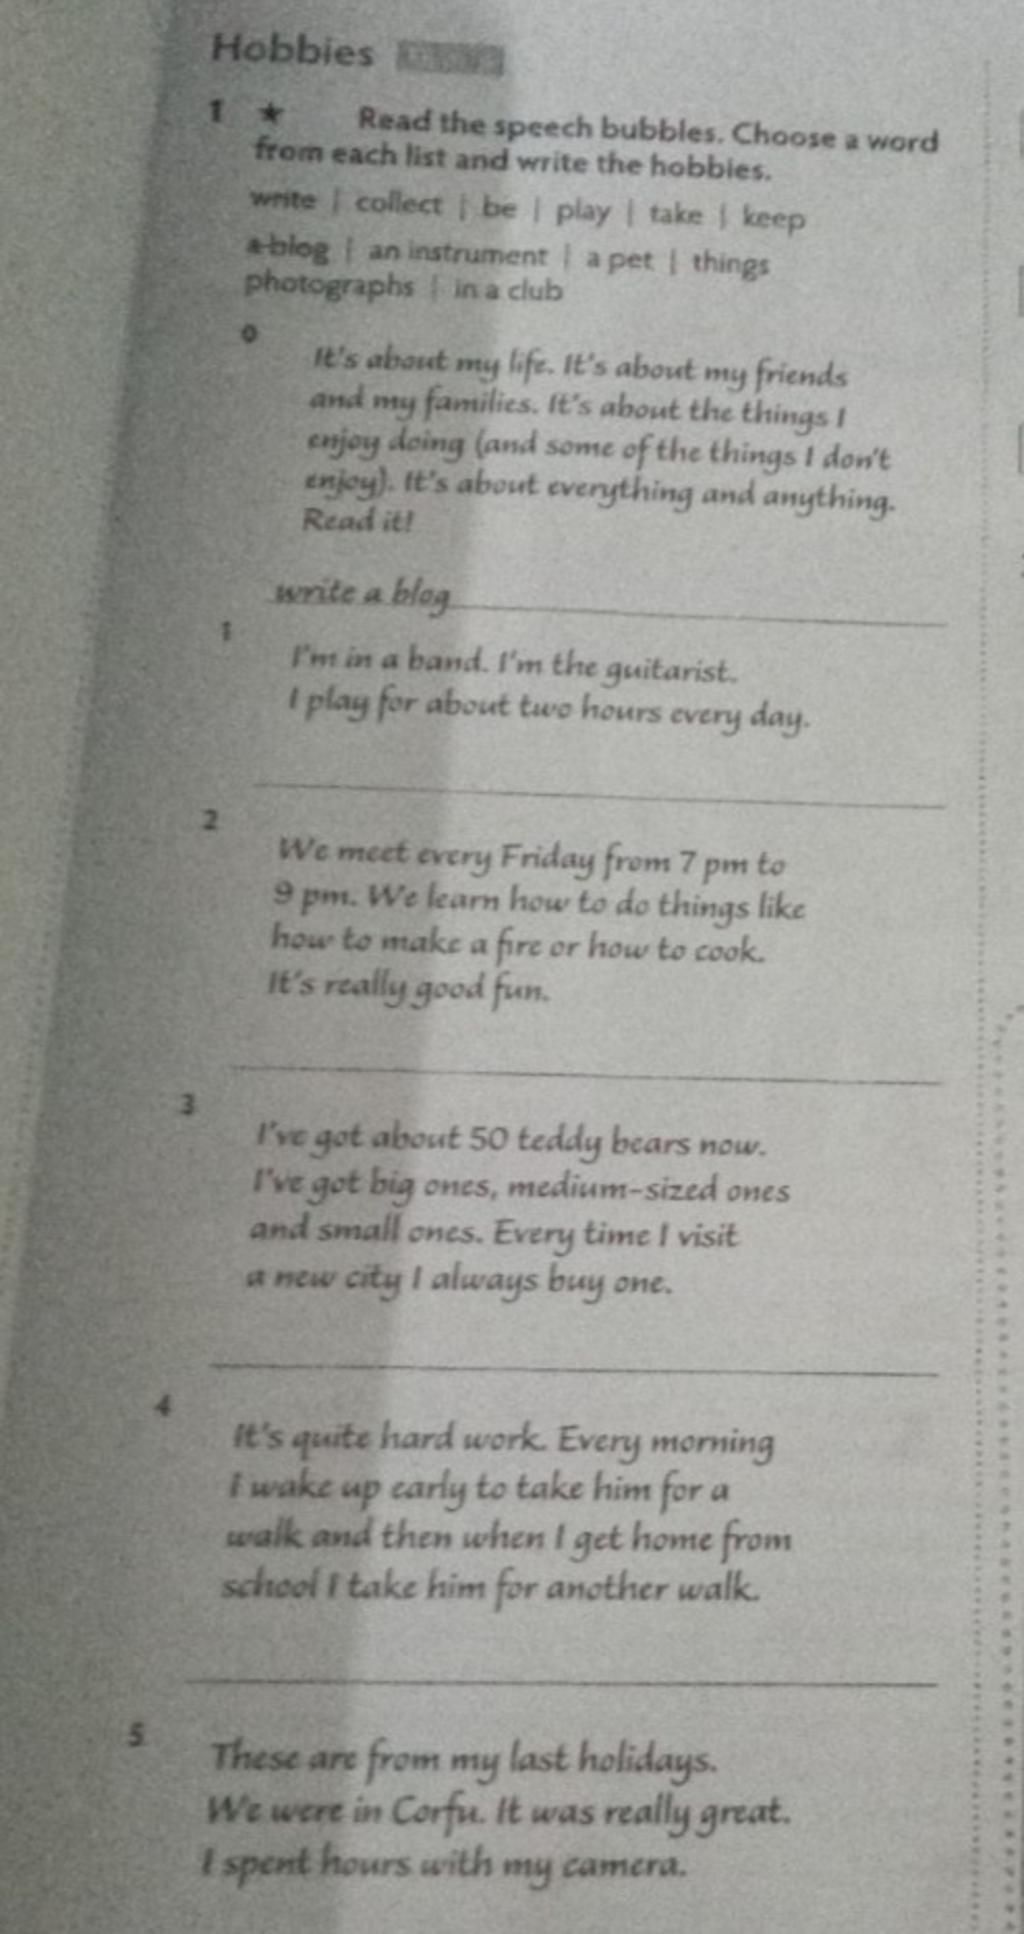 Hobbies
1 ★ Read the speech bubbles. Choose a word
from each list and write the hobbies.
write | collect | be | play | take | keep
a blog | an instrument | a pet | things
photographs | in a club
0
It's about my life. It's about my friends
and my families. It's about the things I
enjoy doing (and some of the things I don't
enjoy). It's about everything and anything.
Read it!
write a blog
1
I'm in a band. I'm the guitarist.
I play for about two hours every day.
2
We meet every Friday from 7 pm to
9 pm. We learn how to do things like
how to make a fire or how to cook.
It's really good fun.
3
I've got about 50 teddy bears now.
I've got big ones, medium-sized ones
and small ones. Every time I visit
a new city I always buy one.
4
It's quite hard work. Every morning
I wake up early to take him for a
walk and then when I get home from
school I take him for another walk.
5
These are from my last holidays.
We were in Corfu. It was really great.
I spent hours with my camera.